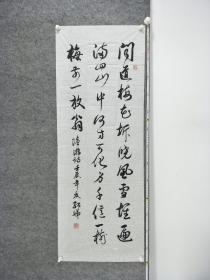 闻道梅花坼晓风雪堆遍
满四山中何方可化身千亿一树
梅前一放翁 陆游诗 壬辰年夏